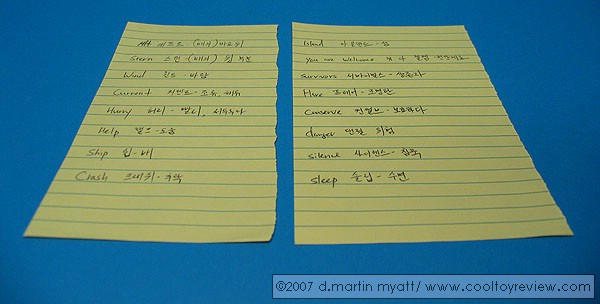 Aft (배의)
Stern 스턴 (배의)
Wind 윈드 - 바람
Current 커렌트 - 조류, 해류
Hurry 허리 - 빨리, 서두르다
Help 헬프 - 도움
Ship 쉽 - 배
Crash 크래쉬 - 추락
Island 아일랜드 - 섬
You are welcome
Survivors 서바이벌스 - 생존자
Here
Conserve 컨절브 - 보호하다
danger 댄절 위험
silence 사이렌스 - 침묵
Sleep 슬립 - 수면
©2007 d.martin myatt/ www.cooltoyreview.com